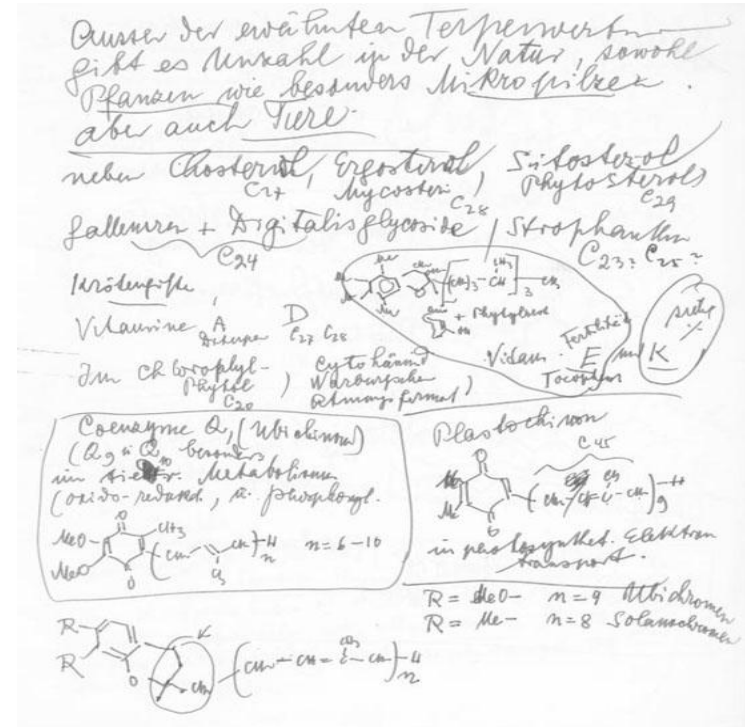 Ausser der erwähnten Terpenverb
gibt es Unzahl in der Natur, sowohl
Pflanzen wie besonders Mikropilzen.
aber auch Tiere.
neben Cholesterol, Ergosterol, Sitosterol
C27 Mycosteri. C28 Phytosterols C29
Gallensren + Digitalisglycoside, Strophanthin
C24 C23? C25?
Krötengifte,
Me Me Me (CH2)3 - CH CH3 3 - CH3
+ Phytylrest
Vitamine A Diterpen D C27 C28
Vitam. Fertilität E und K
Tocopherol
siehe
Im Chlorophyl-
Phytol C20
) Cytohämin
Warburgsche
Atmungsferment )
Coenzyme Q, (Ubichinon)
(Q9 u Q10 besonders
im Metabolismus
(oxido-reduct, u. phosphoryl.
MeO- MeO O O CH3 CH3 H n n=6-10
Plastochinon
C45
O Me Me O 9 H
in photosynthet. Elektron
transport.
R = MeO- n=9 Ubichromen
R = Me- n=8 Solanochromen
R R O CH3 (CH2 - CH = C - CH2) H n